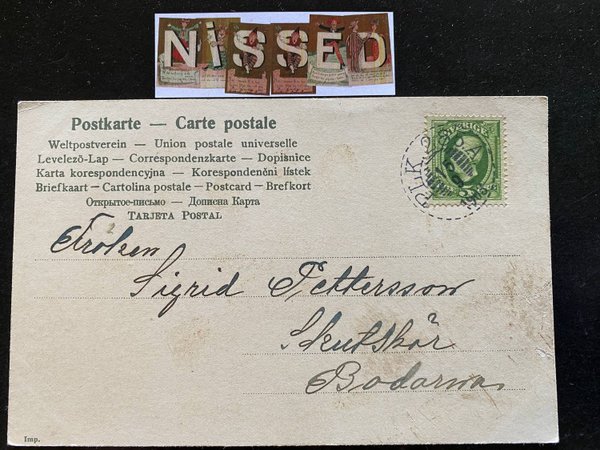 NiSSED
Postkarte — Carte postale
Weltpostverein — Union postale universelle
Levelező-Lap — Correspondenzkarte — Dopisnice
Karta korespondencyjna — Korespondenční lístek
Briefkaart — Cartolina postale — Postcard — Brefkort
Открытое-письмо — Дописна Карта
TARJETA POSTAL
SVERIGE
PLK
Fröken
Sigrid Pettersson
Skutskär
Bodarna
Imp.